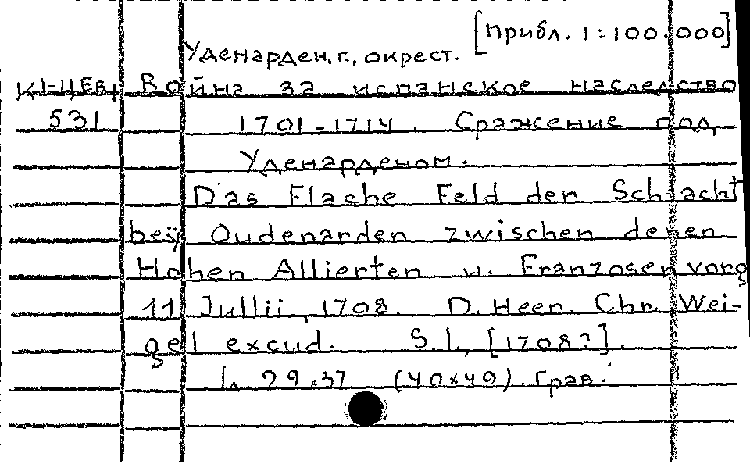 [Прибл. 1:100.000]
Уденарден, г., окрест.
К1-Цев, Война за испанское наследство
531 1701-1714. Сражение под
Уденарденом.
Das Flache Feld der Schlacht
beÿ Oudenarden zwischen denen
Hohen Allierten u. Franzosen vorg
11 Jullii, 1708. D. Heer. Chr. Wei-
gel excud. S.l., [1708?].
1 л. 29×37 (40×49) грав.